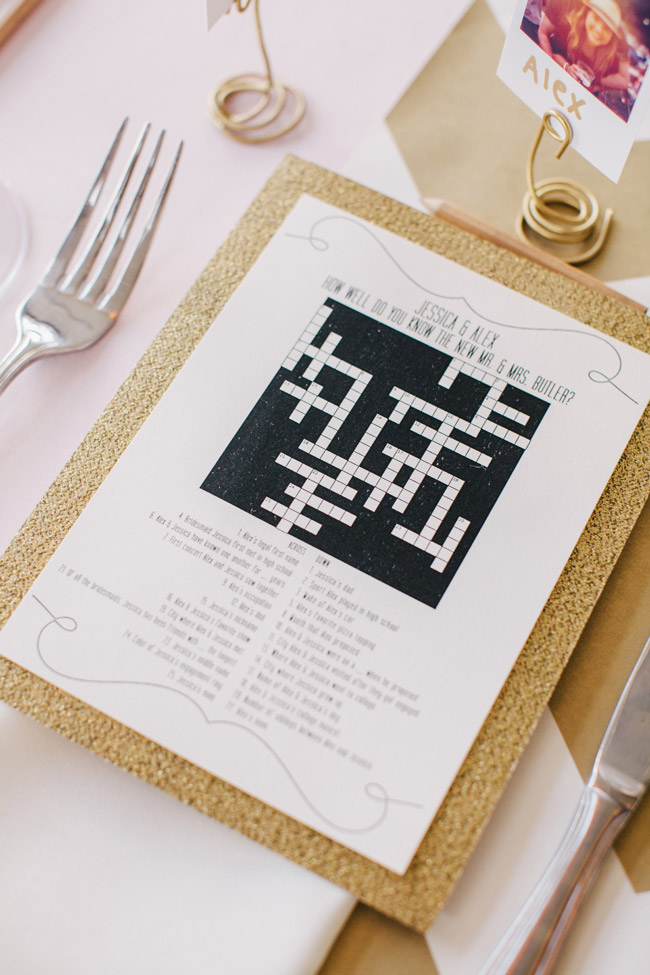 Alex
JESSICA & ALEX
HOW WELL DO YOU KNOW THE NEW MR. & MRS. BUTLER?
ACROSS
1. Alex's legal first name
4. Bridesmaid Jessica first met in high school
6. Alex & Jessica have known one another for ... years
7. First concert Alex and Jessica saw together
9. Alex's occupation
12. Alex's dad
15. Jessica's nickname
16. Alex & Jessica's favorite show
19. City where Alex & Jessica met
21. Of all the bridesmaids, Jessica has been friends with ... the longest
23. Jessica's middle name
24. Color of Jessica's engagement ring
25. Jessica's mom
DOWN
1. Jessica's dad
2. Sport Alex played in high school
3. Make of Alex's car
5. Alex's favorite pizza topping
8. Month that Alex proposed
10. Alex & Jessica were on a ... when he proposed
11. City Alex & Jessica visited after they got engaged
13. Where Alex & Jessica went to college
14. City where Jessica grew up
18. Name of Alex & Jessica's dog
20. Jessica's college mascot
22. Number of siblings between Alex and Jessica
Alex's mom